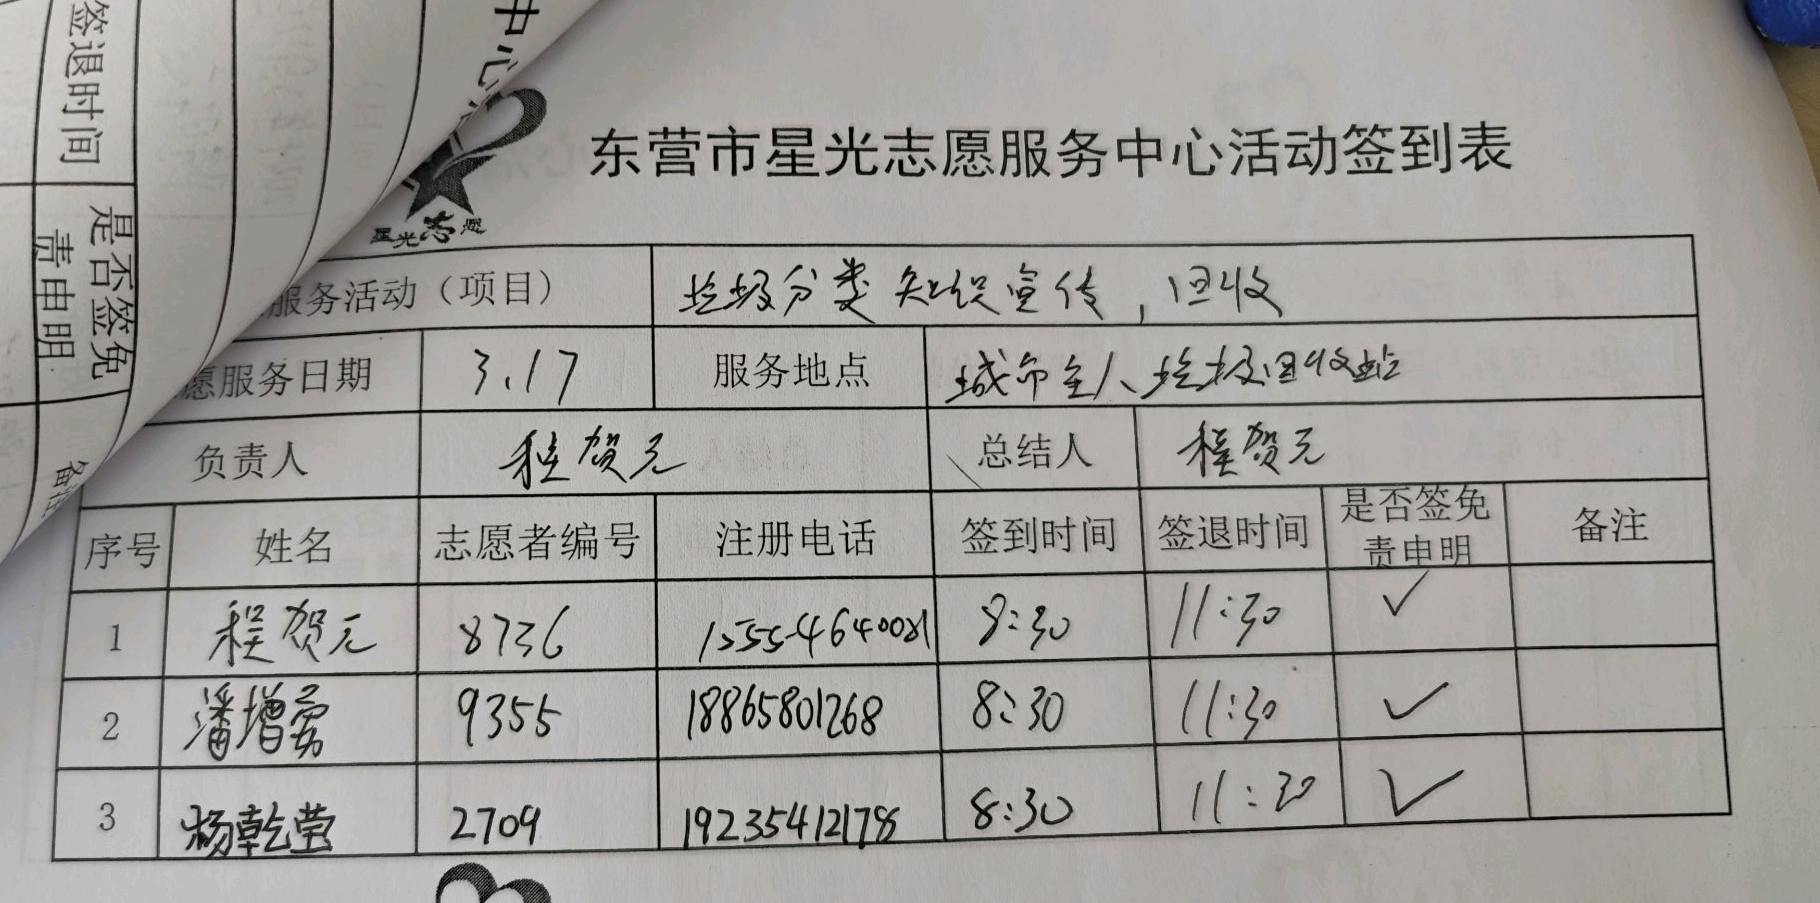 签退时间
是否签免
责申明
备注
中心
东营市星光志愿服务中心活动签到表
星光志愿
服务活动（项目） 垃圾分类知识宣传，回收
愿服务日期 3.17 服务地点 城市主人垃圾回收站
负责人 程贺元 总结人 程贺元
序号 姓名 志愿者编号 注册电话 签到时间 签退时间 是否签免责申明 备注
1 程贺元 8736 15554640081 8:30 11:30 ✓
2 潘增勇 9355 18865801268 8:30 11:30 ✓
3 杨乾莹 2709 19235412178 8:30 11:30 ✓